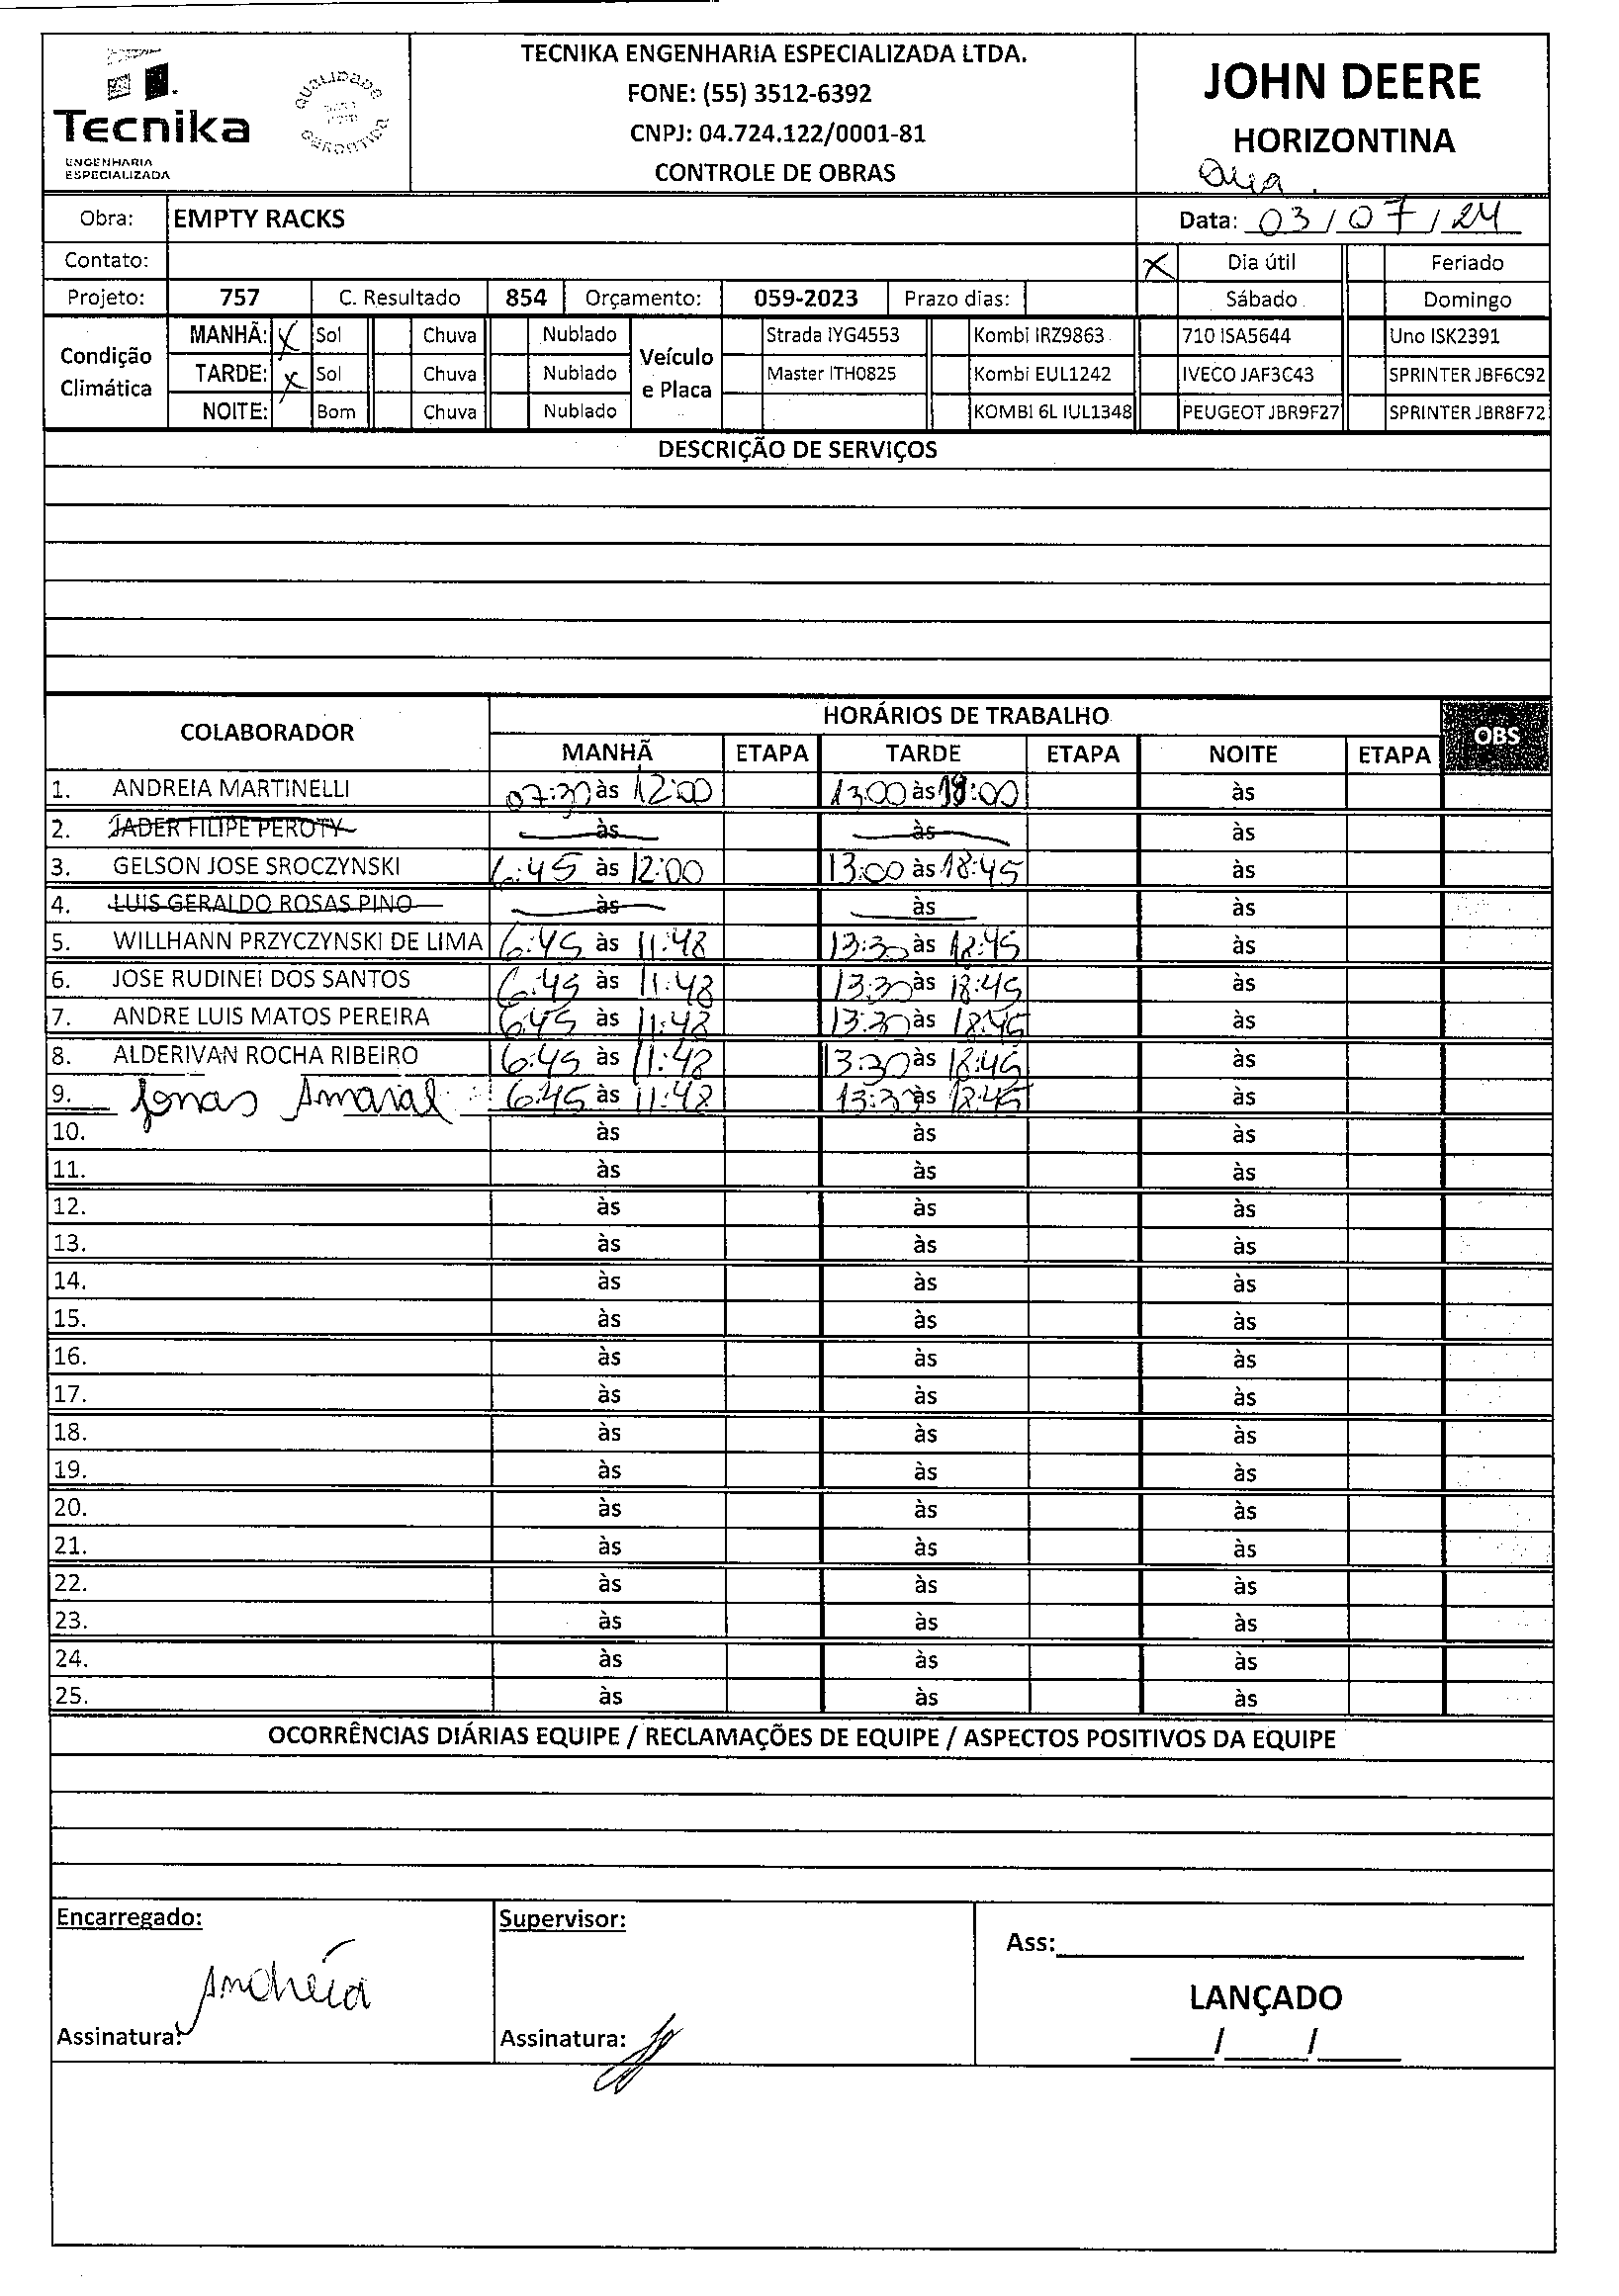 Tecnika
ENGENHARIA
ESPECIALIZADA
QUALIDADE
GARANTIDA
TECNIKA ENGENHARIA ESPECIALIZADA LTDA.
FONE: (55) 3512-6392
CNPJ: 04.724.122/0001-81
CONTROLE DE OBRAS
JOHN DEERE
HORIZONTINA
Qua.
Obra: EMPTY RACKS Data: 03/07/24
Contato: X Dia útil Feriado
Projeto: 757 C. Resultado 854 Orçamento: 059-2023 Prazo dias: Sábado Domingo
Condição Climática
MANHÃ: X Sol Chuva Nublado
TARDE: X Sol Chuva Nublado
NOITE: Bom Chuva Nublado
Veículo e Placa
Strada IYG4553 Kombi IRZ9863 710 ISA5644 Uno ISK2391
Master ITH0825 Kombi EUL1242 IVECO JAF3C43 SPRINTER JBF6C92
KOMBI 6L IUL1348 PEUGEOT JBR9F27 SPRINTER JBR8F72
DESCRIÇÃO DE SERVIÇOS
COLABORADOR HORÁRIOS DE TRABALHO OBS
MANHÃ ETAPA TARDE ETAPA NOITE ETAPA
1. ANDREIA MARTINELLI 07:30 às 12:00 13:00 às 18:00 às
2. JADER FILIPE PEROTY às às às
3. GELSON JOSE SROCZYNSKI 6:45 às 12:00 13:00 às 18:45 às
4. LUIS GERALDO ROSAS PINO às às às
5. WILLHANN PRZYCZYNSKI DE LIMA 6:45 às 11:48 13:30 às 18:45 às
6. JOSE RUDINEI DOS SANTOS 6:45 às 11:48 13:30 às 18:45 às
7. ANDRE LUIS MATOS PEREIRA 6:45 às 11:48 13:30 às 18:45 às
8. ALDERIVAN ROCHA RIBEIRO 6:45 às 11:48 13:30 às 18:45 às
9. Jonas Amaral 6:45 às 11:48 13:30 às 18:45 às
10. às às às
11. às às às
12. às às às
13. às às às
14. às às às
15. às às às
16. às às às
17. às às às
18. às às às
19. às às às
20. às às às
21. às às às
22. às às às
23. às às às
24. às às às
25. às às às
OCORRÊNCIAS DIÁRIAS EQUIPE / RECLAMAÇÕES DE EQUIPE / ASPECTOS POSITIVOS DA EQUIPE
Encarregado: Supervisor:
Ass:
Andréia
LANÇADO
Assinatura: Assinatura:
/ /